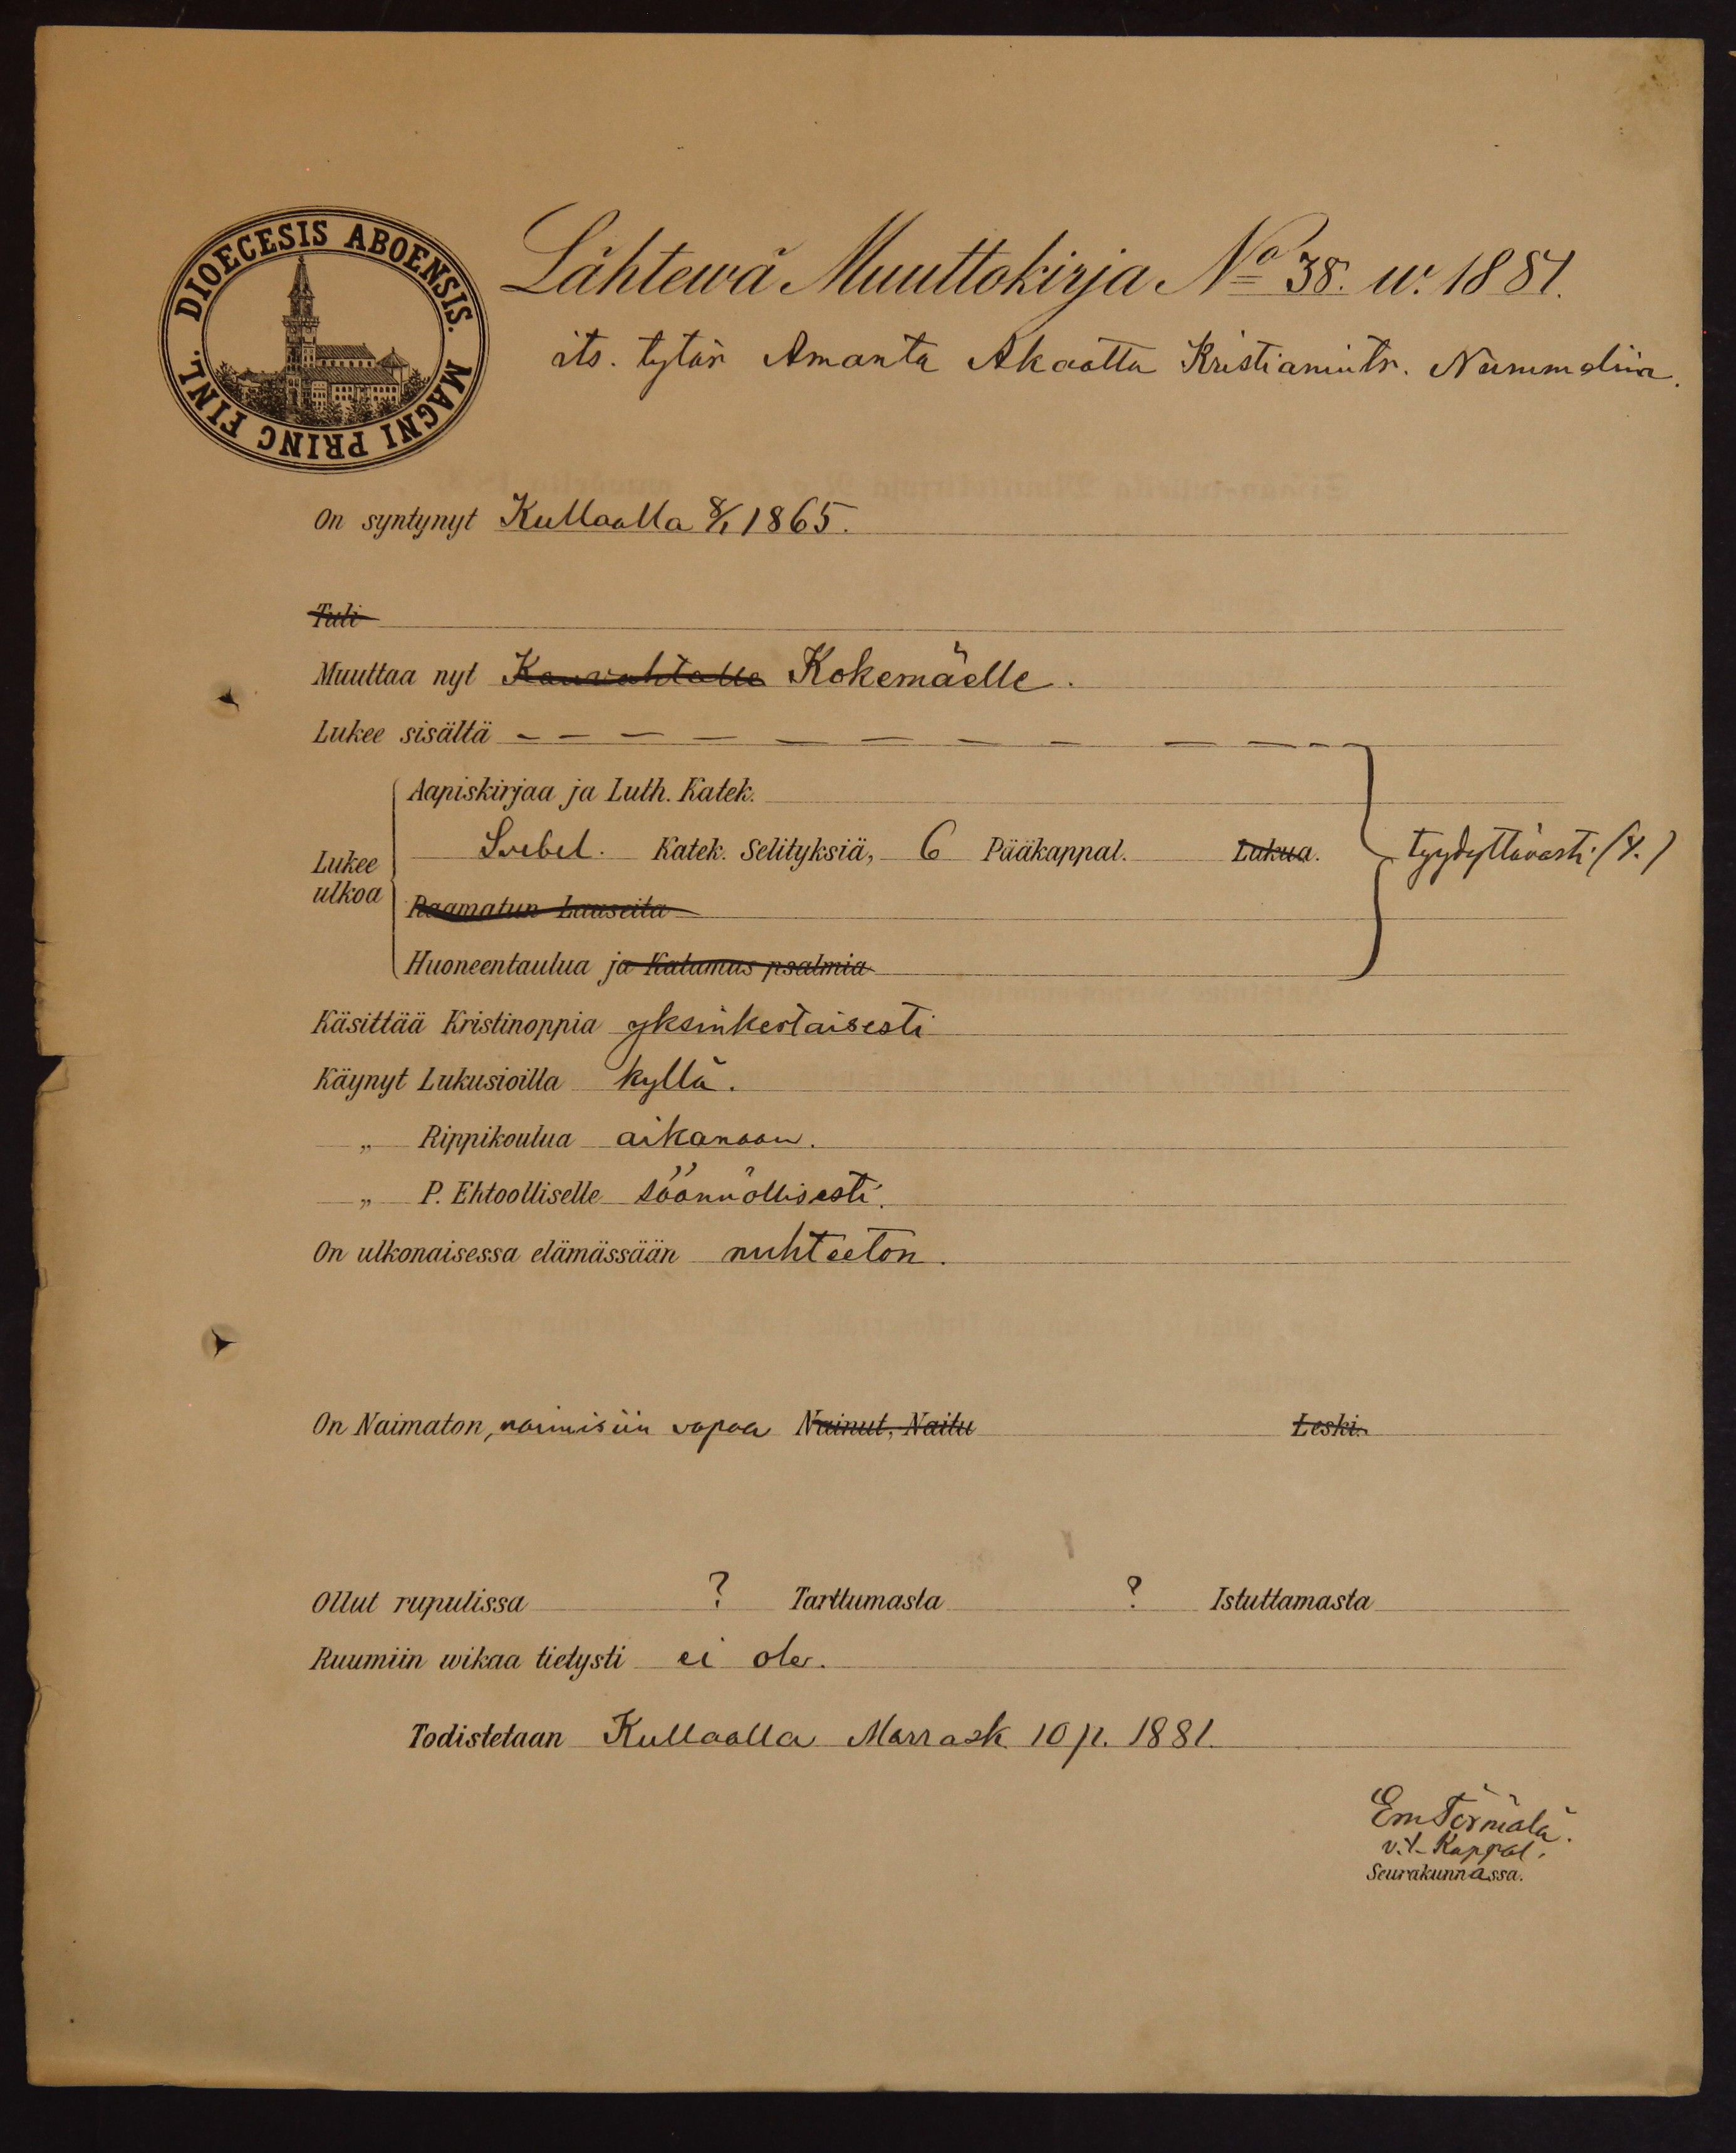 DIOECESIS ABOENSIS. MAGNI PRINC FINL.
Lähtewä Muuttokirja No 38. w. 1881.
its. tytär Amanta Akaatta Kristianintr. Nummelin.
On syntynyt Kullaalla 8/1 1865.
Tuli
Muuttaa nyt Kauvahtalle Kokemäelle.
Lukee sisältä — — — — — — — — — — —
Aapiskirjaa ja Luth. Katek.
Lukee ulkoa
Svebel. Katek. Selityksiä, 6 Pääkappal. Lukua. tyydyttävästi (4.)
Raamatun Lauseita
Huoneentaulua ja Katumus psalmia
Käsittää Kristinoppia yksinkertaisesti
Käynyt Lukusioilla kyllä.
„ Rippikoulua aikanaan.
„ P. Ehtoolliselle säännöllisesti.
On ulkonaisessa elämässään nuhteeton.
On Naimaton, naimisiin vapaa Nainut, Naitu Leski.
Ollut rupulissa ? Tarttumasta ? Istuttamasta
Ruumiin wikaa tietysti ei ole.
Todistetaan Kullaalla Marrask 10 p. 1881.
Em Törmälä.
v.t. Kappal.
Seurakunnassa.